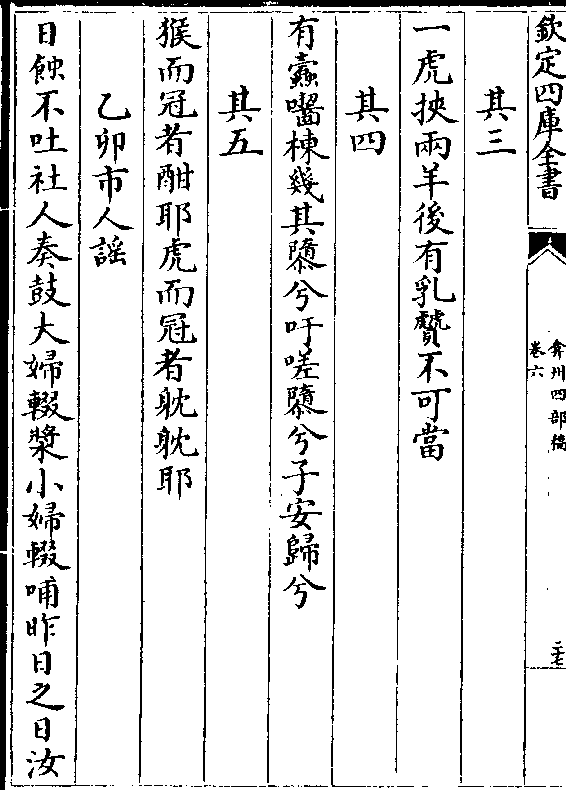 欽定四庫全書
弇州四部稿
卷六
二十七
其三
一虎挾兩羊後有乳贙不可當
其四
有蠹囓棟幾其隳兮吁嗟隳兮子安歸兮
其五
猴而冠者酣耶虎而冠者耽耽耶
乙卯市人謡
日蝕不吐社人奏鼓大婦輟漿小婦輟哺昨日之日汝